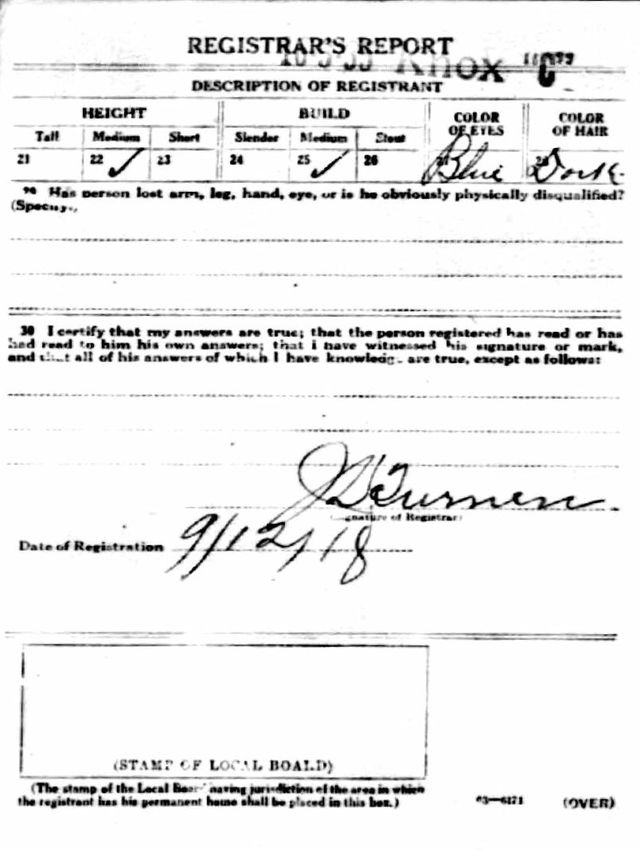 REGISTRAR'S REPORT
Knox "C"
DESCRIPTION OF REGISTRANT
HEIGHT BUILD COLOR OF EYES COLOR OF HAIR
Tall Medium Short Slender Medium Stout
21 22 ✓ 23 24 25 ✓ 26 Blue Dark
Has person lost arm, leg, hand, eye, or is he obviously physically disqualified?
(Specify.)
30 I certify that my answers are true; that the person registered has read or has
had read to him his own answers; that I have witnessed his signature or mark,
and that all of his answers of which I have knowledge are true, except as follows:
Turner
(Signature of Registrar)
Date of Registration 9/12/18
(STAMP OF LOCAL BOARD)
(The stamp of the Local Board having jurisdiction of the area in which
the registrant has his permanent home shall be placed in this box.)
03—6171 (OVER)